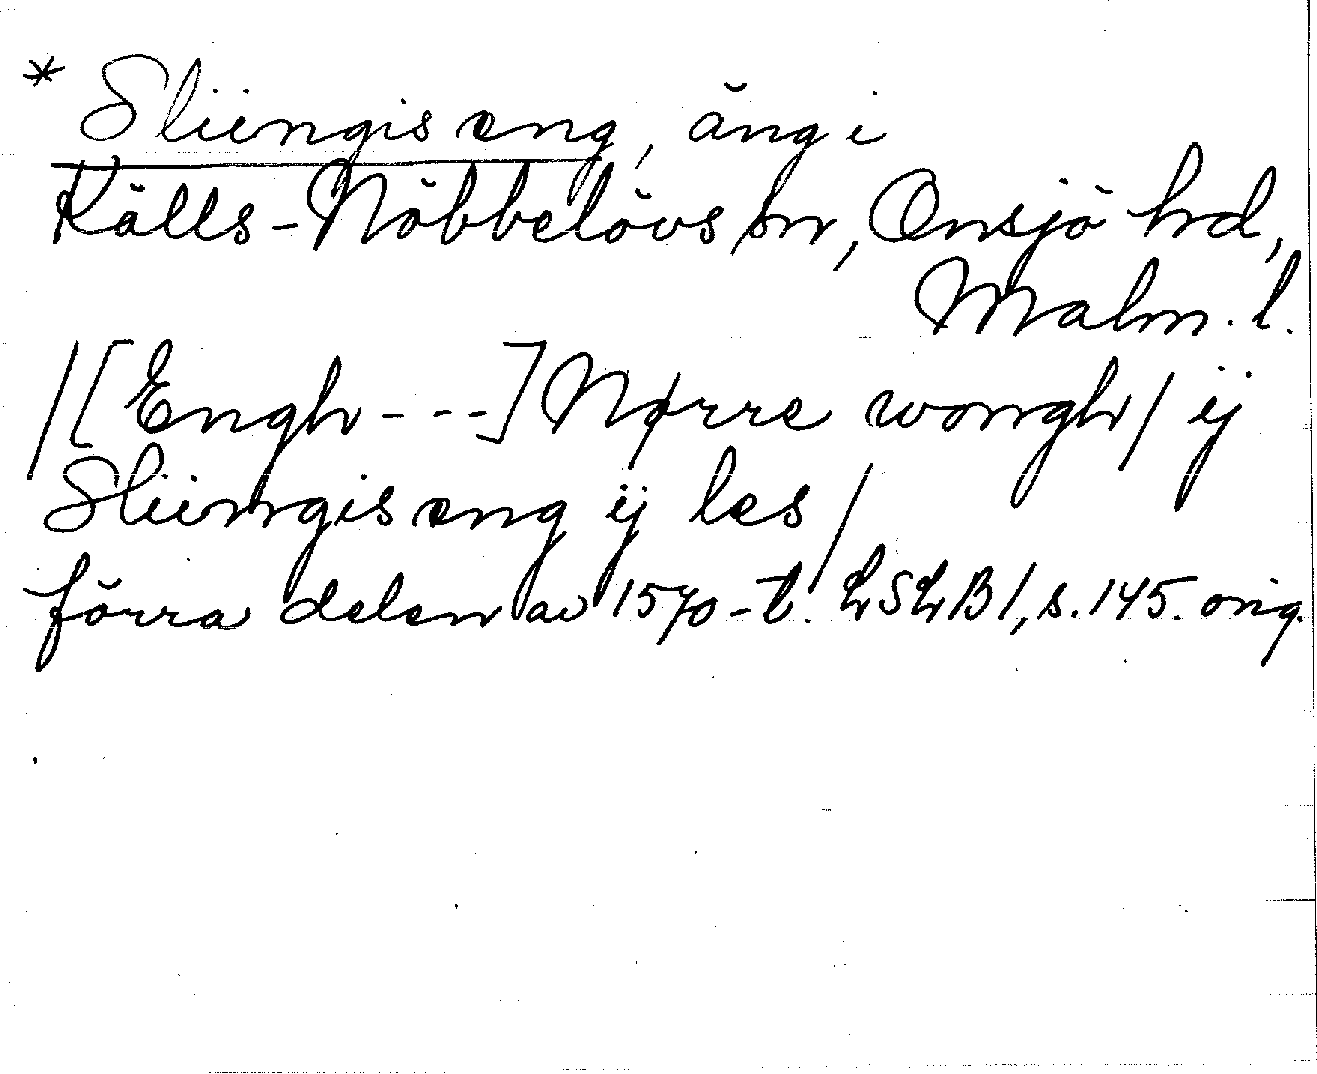 * Sliengis eng, äng i
Källs-Nöbbelövs sn, Onsjö hd,
Malm. l.
/[Engh---] Nørre wongh/ ij
Sliengis eng ij les/
förra delen av 1570-t. LSLB1, s. 145. orig.